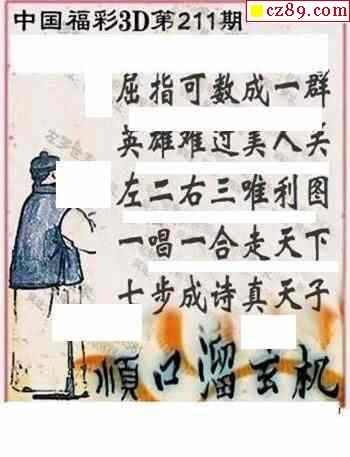 cz89.com
中国福彩3D第211期
屈指可数成一群
英雄难过美人关
左二右三唯利图
一唱一合走天下
七步成诗真天子
顺口溜玄机